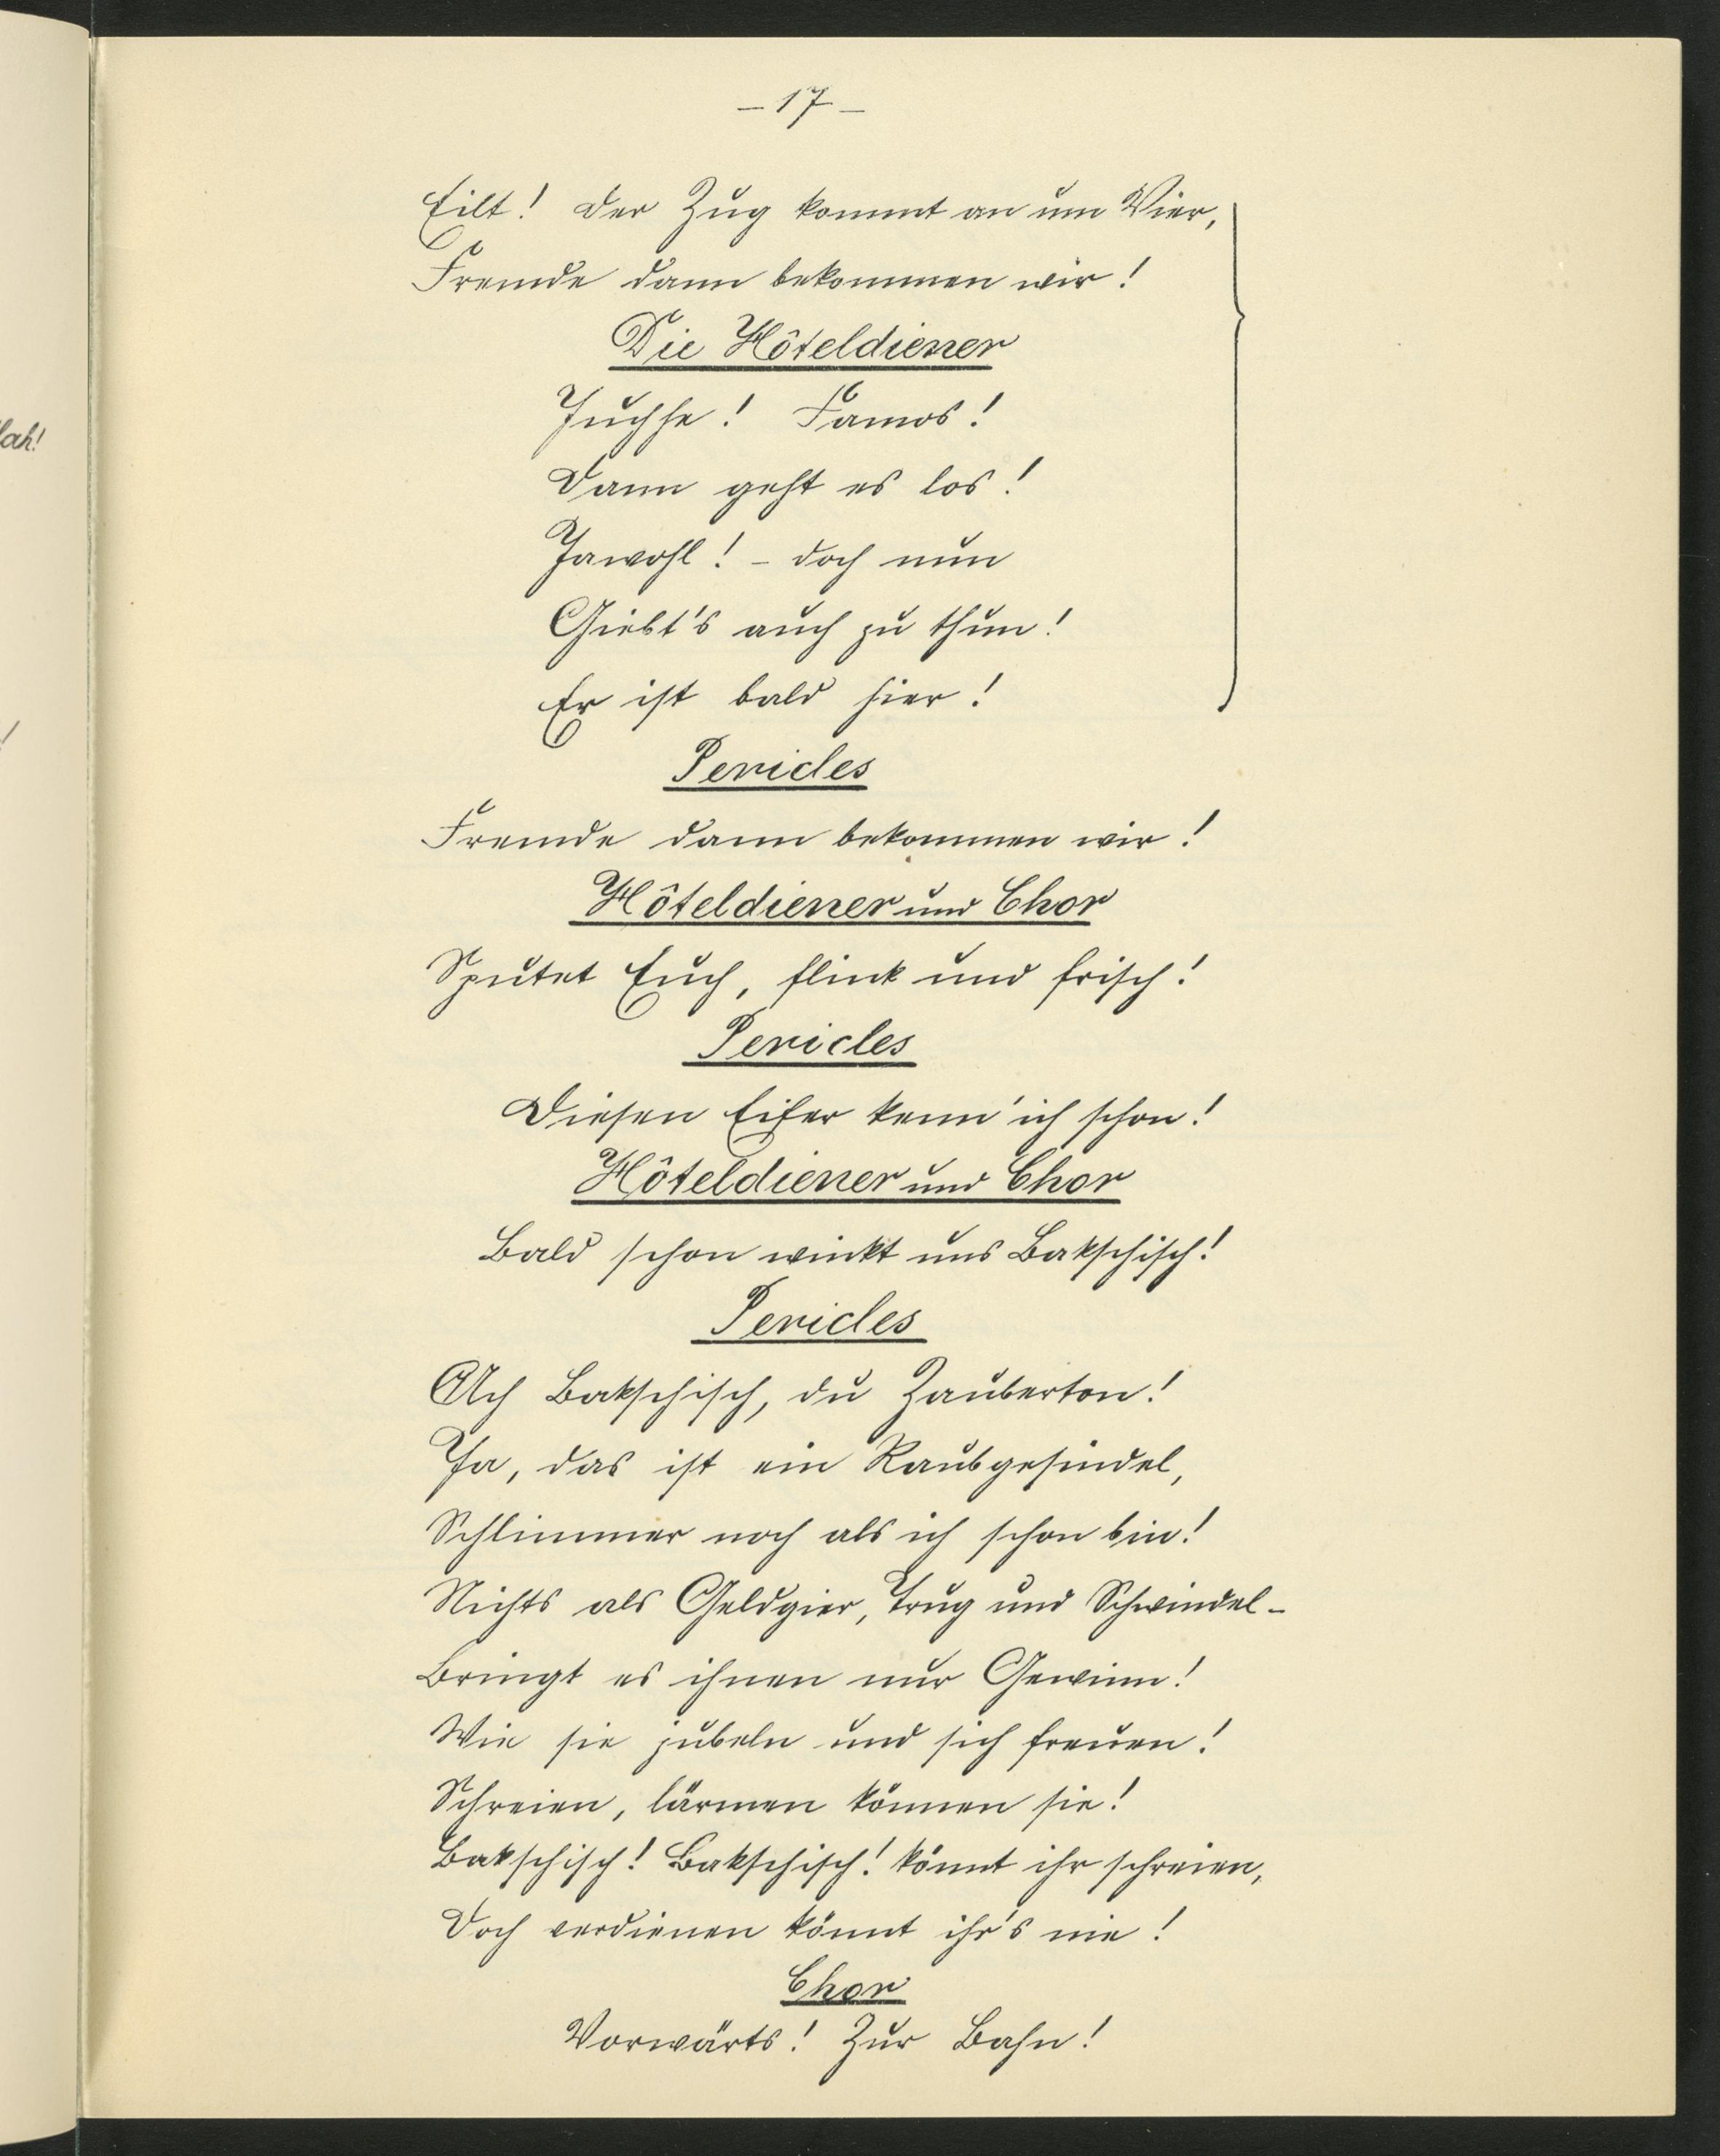 – 17 –
Eilt! Der Zug kommt an um Vier,
Fremde dann bekommen wir!
Die Hôteldiener
Juchhe! Famos!
Dann geht es los!
Jawohl! – doch nun
Giebt's auch zu thun!
Er ist bald hier!
Pericles
Fremde dann bekommen wir!
Hôteldiener und Chor
Sputet Euch, flink und frisch!
Pericles
Diesen Eifer kenn' ich schon!
Hôteldiener und Chor
Bald schon winkt uns Bakschisch!
Pericles
Ach Bakschisch, du Zauberton!
Ja, das ist ein Raubgesindel,
Schlimmer noch als ich schon bin!
Nichts als Geldgier, Trug und Schwindel –
Bringt es ihnen nur Gewinn!
Wie sie jubeln und sich freuen!
Schreien, lärmen können sie!
Bakschisch! Bakschisch! könnt ihr schreien,
Doch verdienen könnt ihr's nie!
Chor
Vorwärts! Zur Bahn!